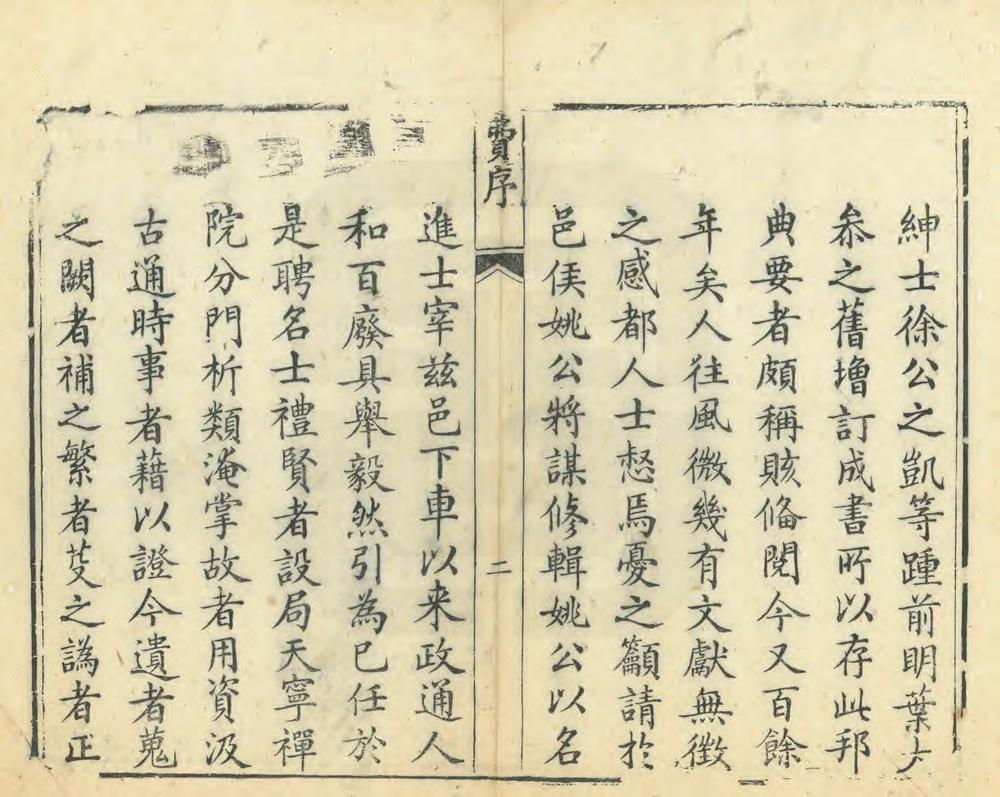 紳士徐公之凱等踵前明葉大
叅之舊增訂成書所以存此邦
典要者頗稱賅俻閱今又百餘
年矣人往風微幾有文獻無徴
之感都人士惄焉憂之籲請於
邑侯姚公將謀修輯姚公以名
費序
二
進士宰兹邑下車以来政通人
和百廢具舉毅然引為已任於
是聘名士禮賢者設局天寧禪
院分門析類淹掌故者用資汲
古通時事者藉以證今遺者蒐
之闕者補之繁者芟之譌者正